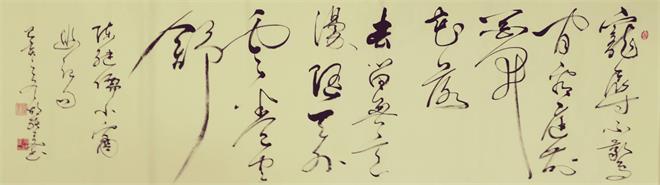 寵辱不驚
闲看庭前
花開
花落
去留無意
漫随天外
雲卷雲
舒
陳継儒小窗
幽记句